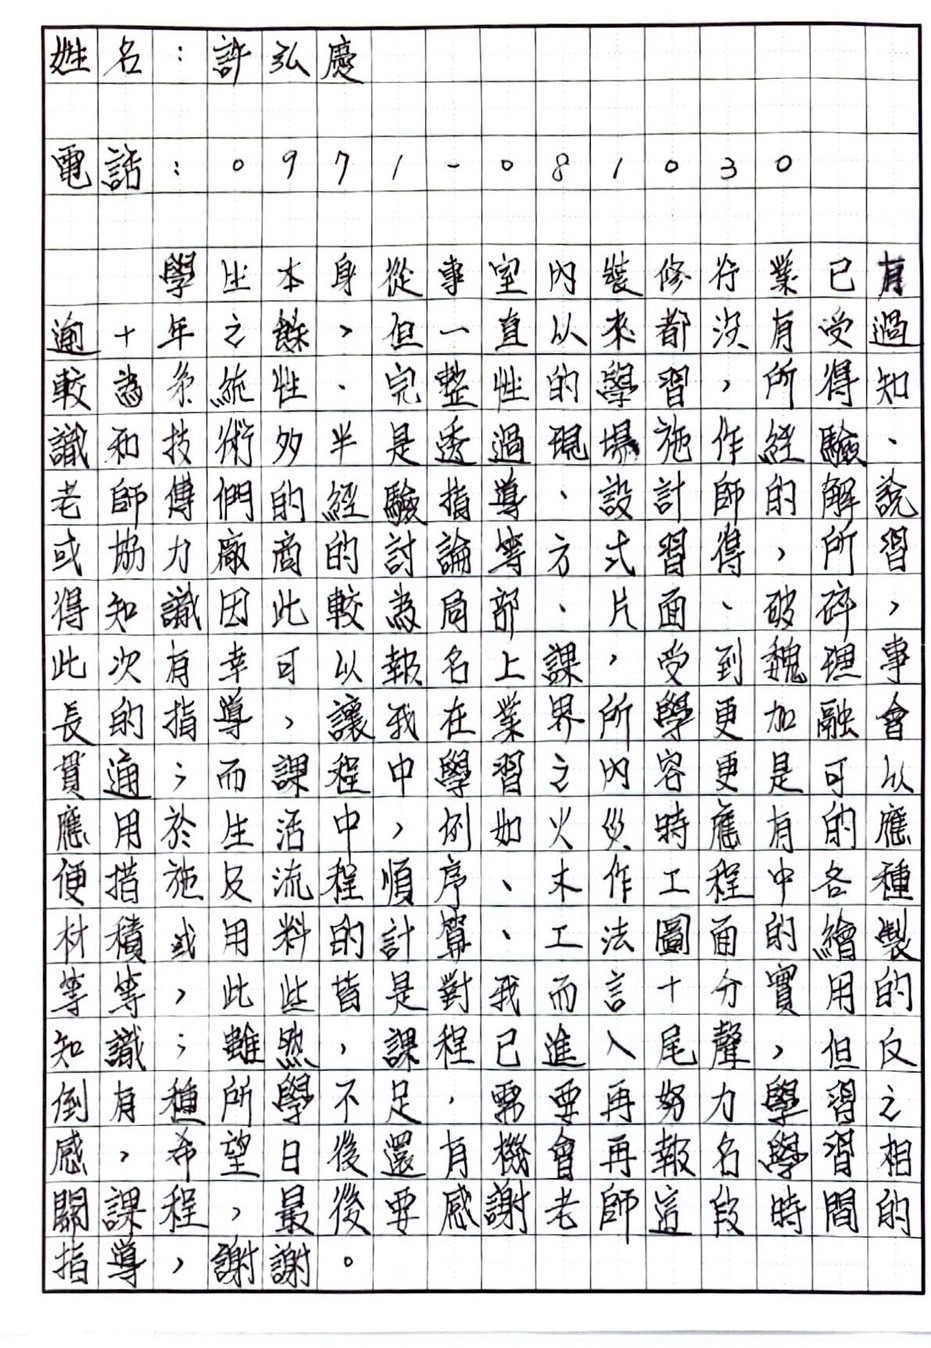 姓名：許弘慶
電話：0971-081030
學生本身從事室內裝修行業已有
逾十年之餘，但一直以來都沒有受過
較為系統性、完整性的學習，所得知
識和技術多半是透過現場施作經驗、
老師傅們的經驗指導、設計師的解說
或協力廠商的討論等方式習得，所習
得知識因此較為局部、片面、破碎，
此次有幸可以報名上課，受到魏理事
長的指導，讓我在業界所學更加融會
貫通；而課程中學習之內容更是可以
應用於生活中，例如火災時應有的應
便措施及流程順序、木作工程中各種
材積或用料的計算、工法圖面的繪製
等等，此些皆是對我而言十分實用的
知識；雖然，課程已進入尾聲，但反
倒有種所學不足，需要再努力學習之
感，希望日後還有機會再報名學習相
關課程，最後要感謝老師這段時間的
指導，謝謝。